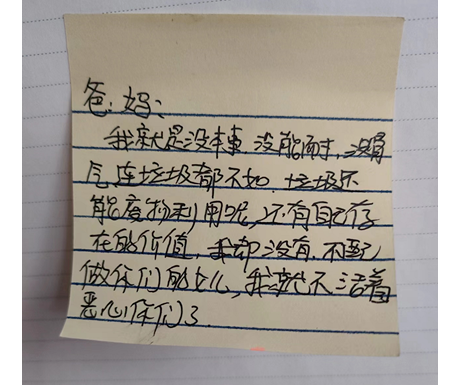 爸.妈:
我就是没本事 没能耐,没骨
气连垃圾都不如.垃圾还
能废物利用呢,还有自己存
在的价值,我却没有.不配
做你们的女儿,我就不活着
恶心你们了.